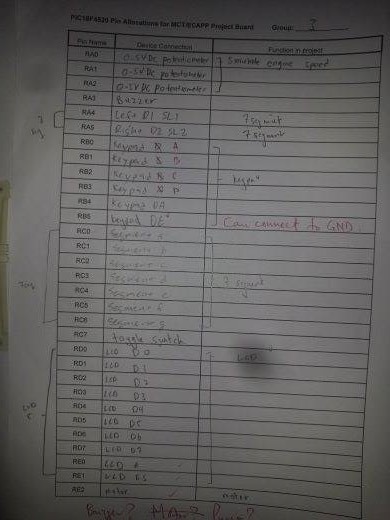 PIC18F4520 Pin Allocations for MCT/ECAPP Project Board Group: 3
Pin Name Device Connection Function in project
RA0 0-5V DC potentiometer Simulate engine speed
RA1 0-5V DC potentiometer
RA2 0-5V DC potentiometer
RA3 Buzzer
RA4 Left D1 SL1 7 segment
RA5 Right D2 SL2 7 segment
RB0 Keypad A
RB1 Keypad B
RB2 Keypad C
RB3 Keypad D
RB4 Keypad DA
RB5 keypad OE Can connect to GND
RC0 Segment a
RC1 Segment b
RC2 Segment c
RC3 Segment d 7 segment
RC4 Segment e
RC5 Segment f
RC6 Segment g
RC7 toggle switch
RD0 LCD D0 LCD
RD1 LCD D1
RD2 LCD D2
RD3 LCD D3
RD4 LCD D4
RD5 LCD D5
RD6 LCD D6
RD7 LCD D7
RE0 LCD
RE1 LCD
RE2 motor motor
Buzzer? Motor?